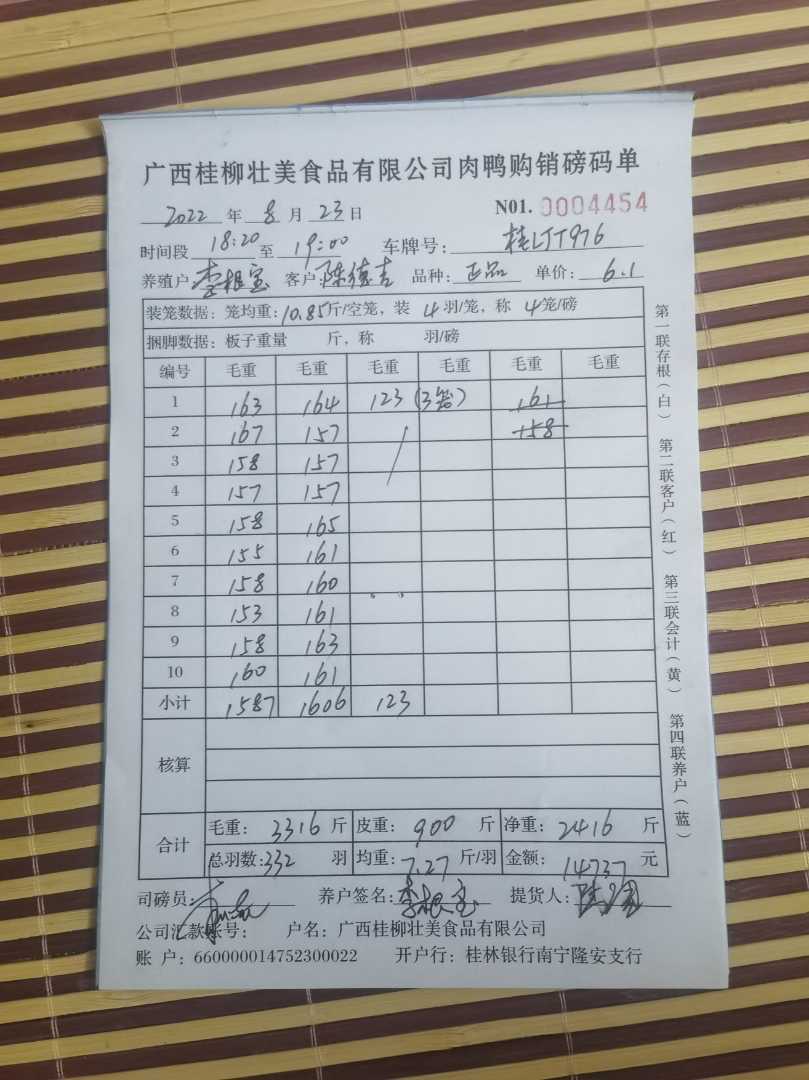 广西桂柳壮美食品有限公司肉鸭购销磅码单
2022 年 8 月 23 日 N01. 0004454
时间段 18:20 至 19:00 车牌号: 桂LJT976
养殖户: 李根宝 客户: 陈德吉 品种: 正品 单价: 6.1
装笼数据: 笼均重: 10.85 斤/空笼, 装 4 羽/笼, 称 4 笼/磅
捆脚数据: 板子重量 斤, 称 羽/磅
编号 毛重 毛重 毛重 毛重 毛重 毛重
1 163 164 123 (3笼) 161
2 167 157 158
3 158 157
4 157 157
5 158 165
6 155 161
7 158 160
8 153 161
9 158 163
10 160 161
小计 1587 1606 123
核算
合计 毛重: 3316 斤 皮重: 900 斤 净重: 2416 斤
总羽数: 332 羽 均重: 7.27 斤/羽 金额: 14737 元
司磅员: 养户签名: 李根宝 提货人:
公司汇款账号: 户名: 广西桂柳壮美食品有限公司
账 户: 660000014752300022 开户行: 桂林银行南宁隆安支行
第一联存根(白) 第二联客户(红) 第三联会计(黄) 第四联养户(蓝)